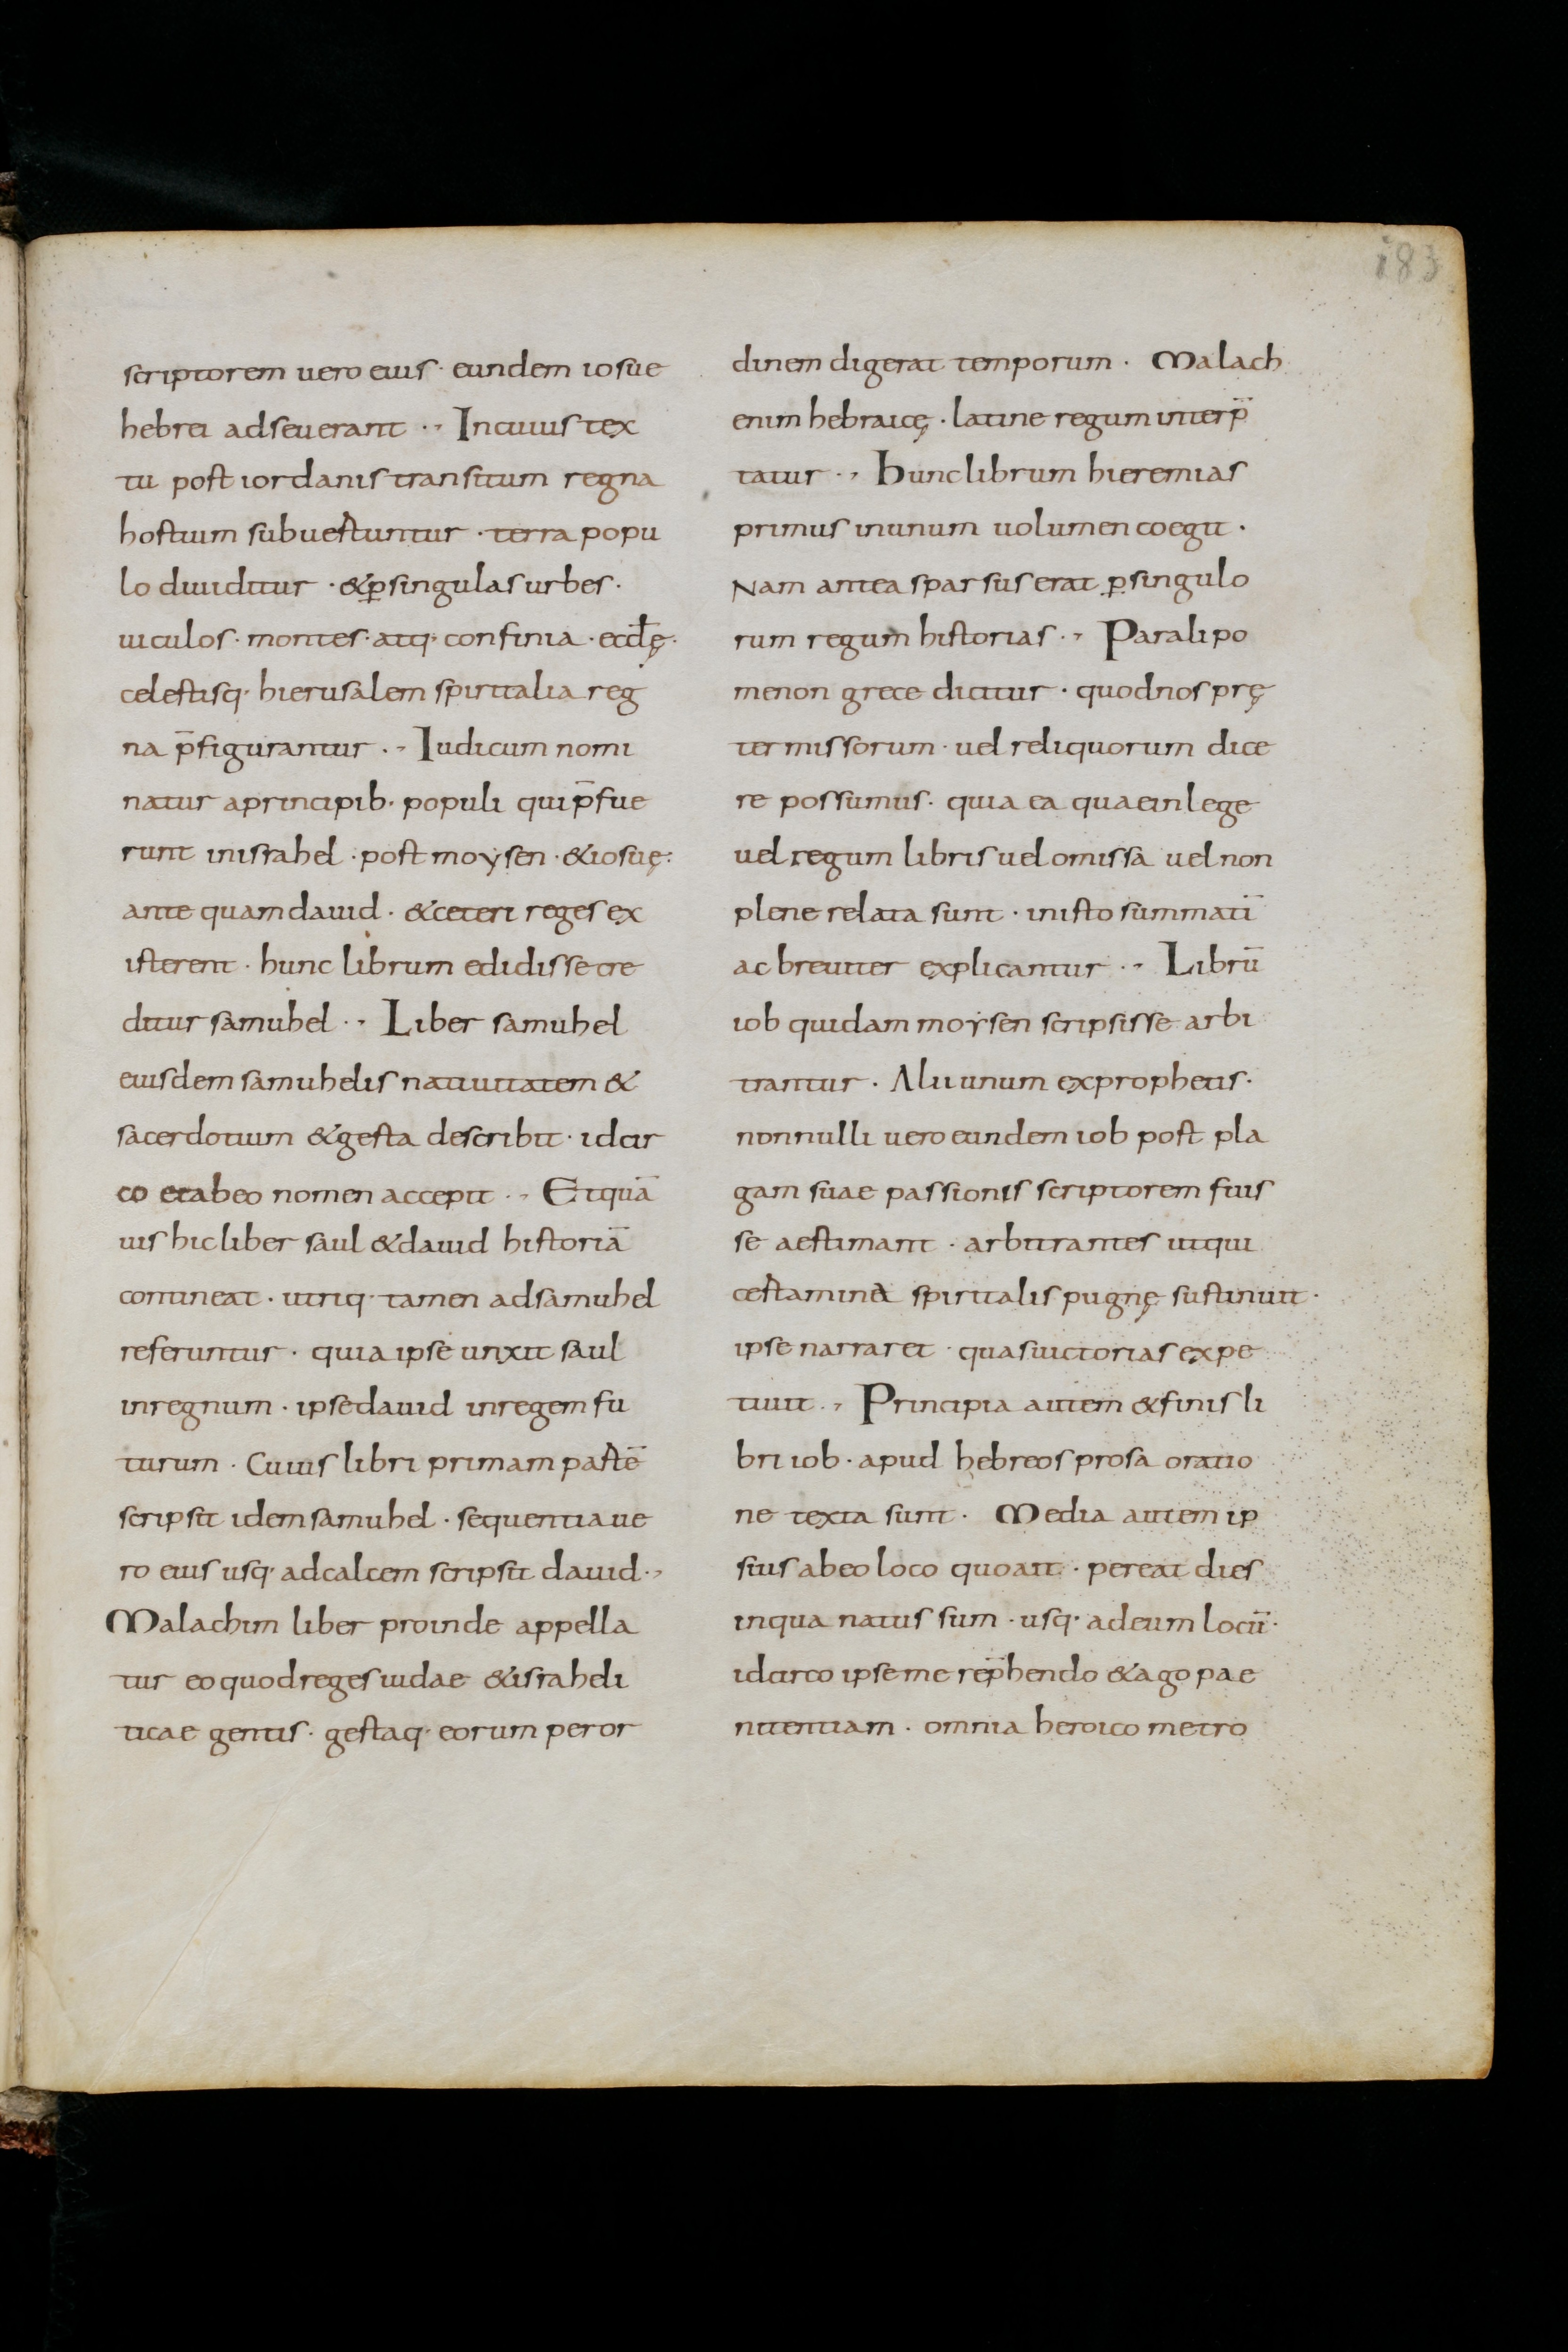 183
scriptorem uero eius · eundem iosue
hebrei adseuerant ·, In cuius tex
tu post iordanis transitum regna
hostium subuertuntur · terra popu
lo diuiditur · & ꝑ singulas urbes ·
uiculos · montes · atq· confinia · eccłę ·
celestisq· hierusalem spiritalia reg
na p̄figurantur ·, Iudicum nomi
natur a principib· populi qui p̄fue
runt in israhel · post moysen · & iosuę ·
ante quam dauid · & ceteri reges ex
isterent · hunc librum edidisse cre
ditur samuhel ·, Liber samuhel
eiusdem samuhelis natiuitatem &
sacerdotium & gesta describit · idcir
co et ab eo nomen accepit ·, Et quā
uis hic liber saul & dauid historiā
contineat · utriq· tamen ad samuhel
referuntur · quia ipse unxit saul
in regnum · ipse dauid in regem fu
turum · Cuius libri primam partē
scripsit idem samuhel · sequentia ue
ro eius usq· ad calcem scripsit dauid ·,
Malachim liber proinde appella
tur eo quod reges iudae & israheli
ticae gentis · gestaq· eorum per or
dinem digerat temporum · Malach
enim hebraicę · latine regum interp̄
tatur ·, Hunc librum hieremias
primus in unum uolumen coegit ·
Nam antea sparsus erat ꝑ singulo
rum regum historias ·, Paralipo
menon grece dicitur · quod nos prę
termissorum · uel reliquorum dice
re possumus · quia ea quae in lege
uel regum libris uel omissa uel non
plene relata sunt · in isto summatī
ac breuiter explicantur ·, Librū
iob quidam moysen scripsisse arbi
trantur · Alii unum ex prophetis ·
nonnulli uero eundem iob post pla
gam suae passionis scriptorem fuis
se aestimant · arbitrantes ut qui
certamina spiritalis pugnę sustinuit ·
ipse narraret · quas uictorias expe
tiuit ·, Principia autem & finis li
bri iob · apud hebreos prosa oratio
ne texta sunt · Media autem ip
sius ab eo loco quo ait · pereat dies
in qua natus sum · usq· ad eum locū ·
idcirco ipse me rep̄hendo & ago pae
nitentiam · omnia heroico metro